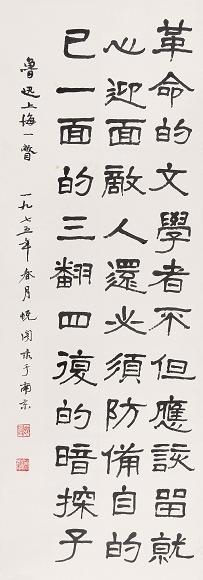 革命的文學者不但應該畱就
心迎面敵人還必須防備自的
己一面的三翻四復的暗探子
魯迅上海一瞥 一九七五年春月 于南京